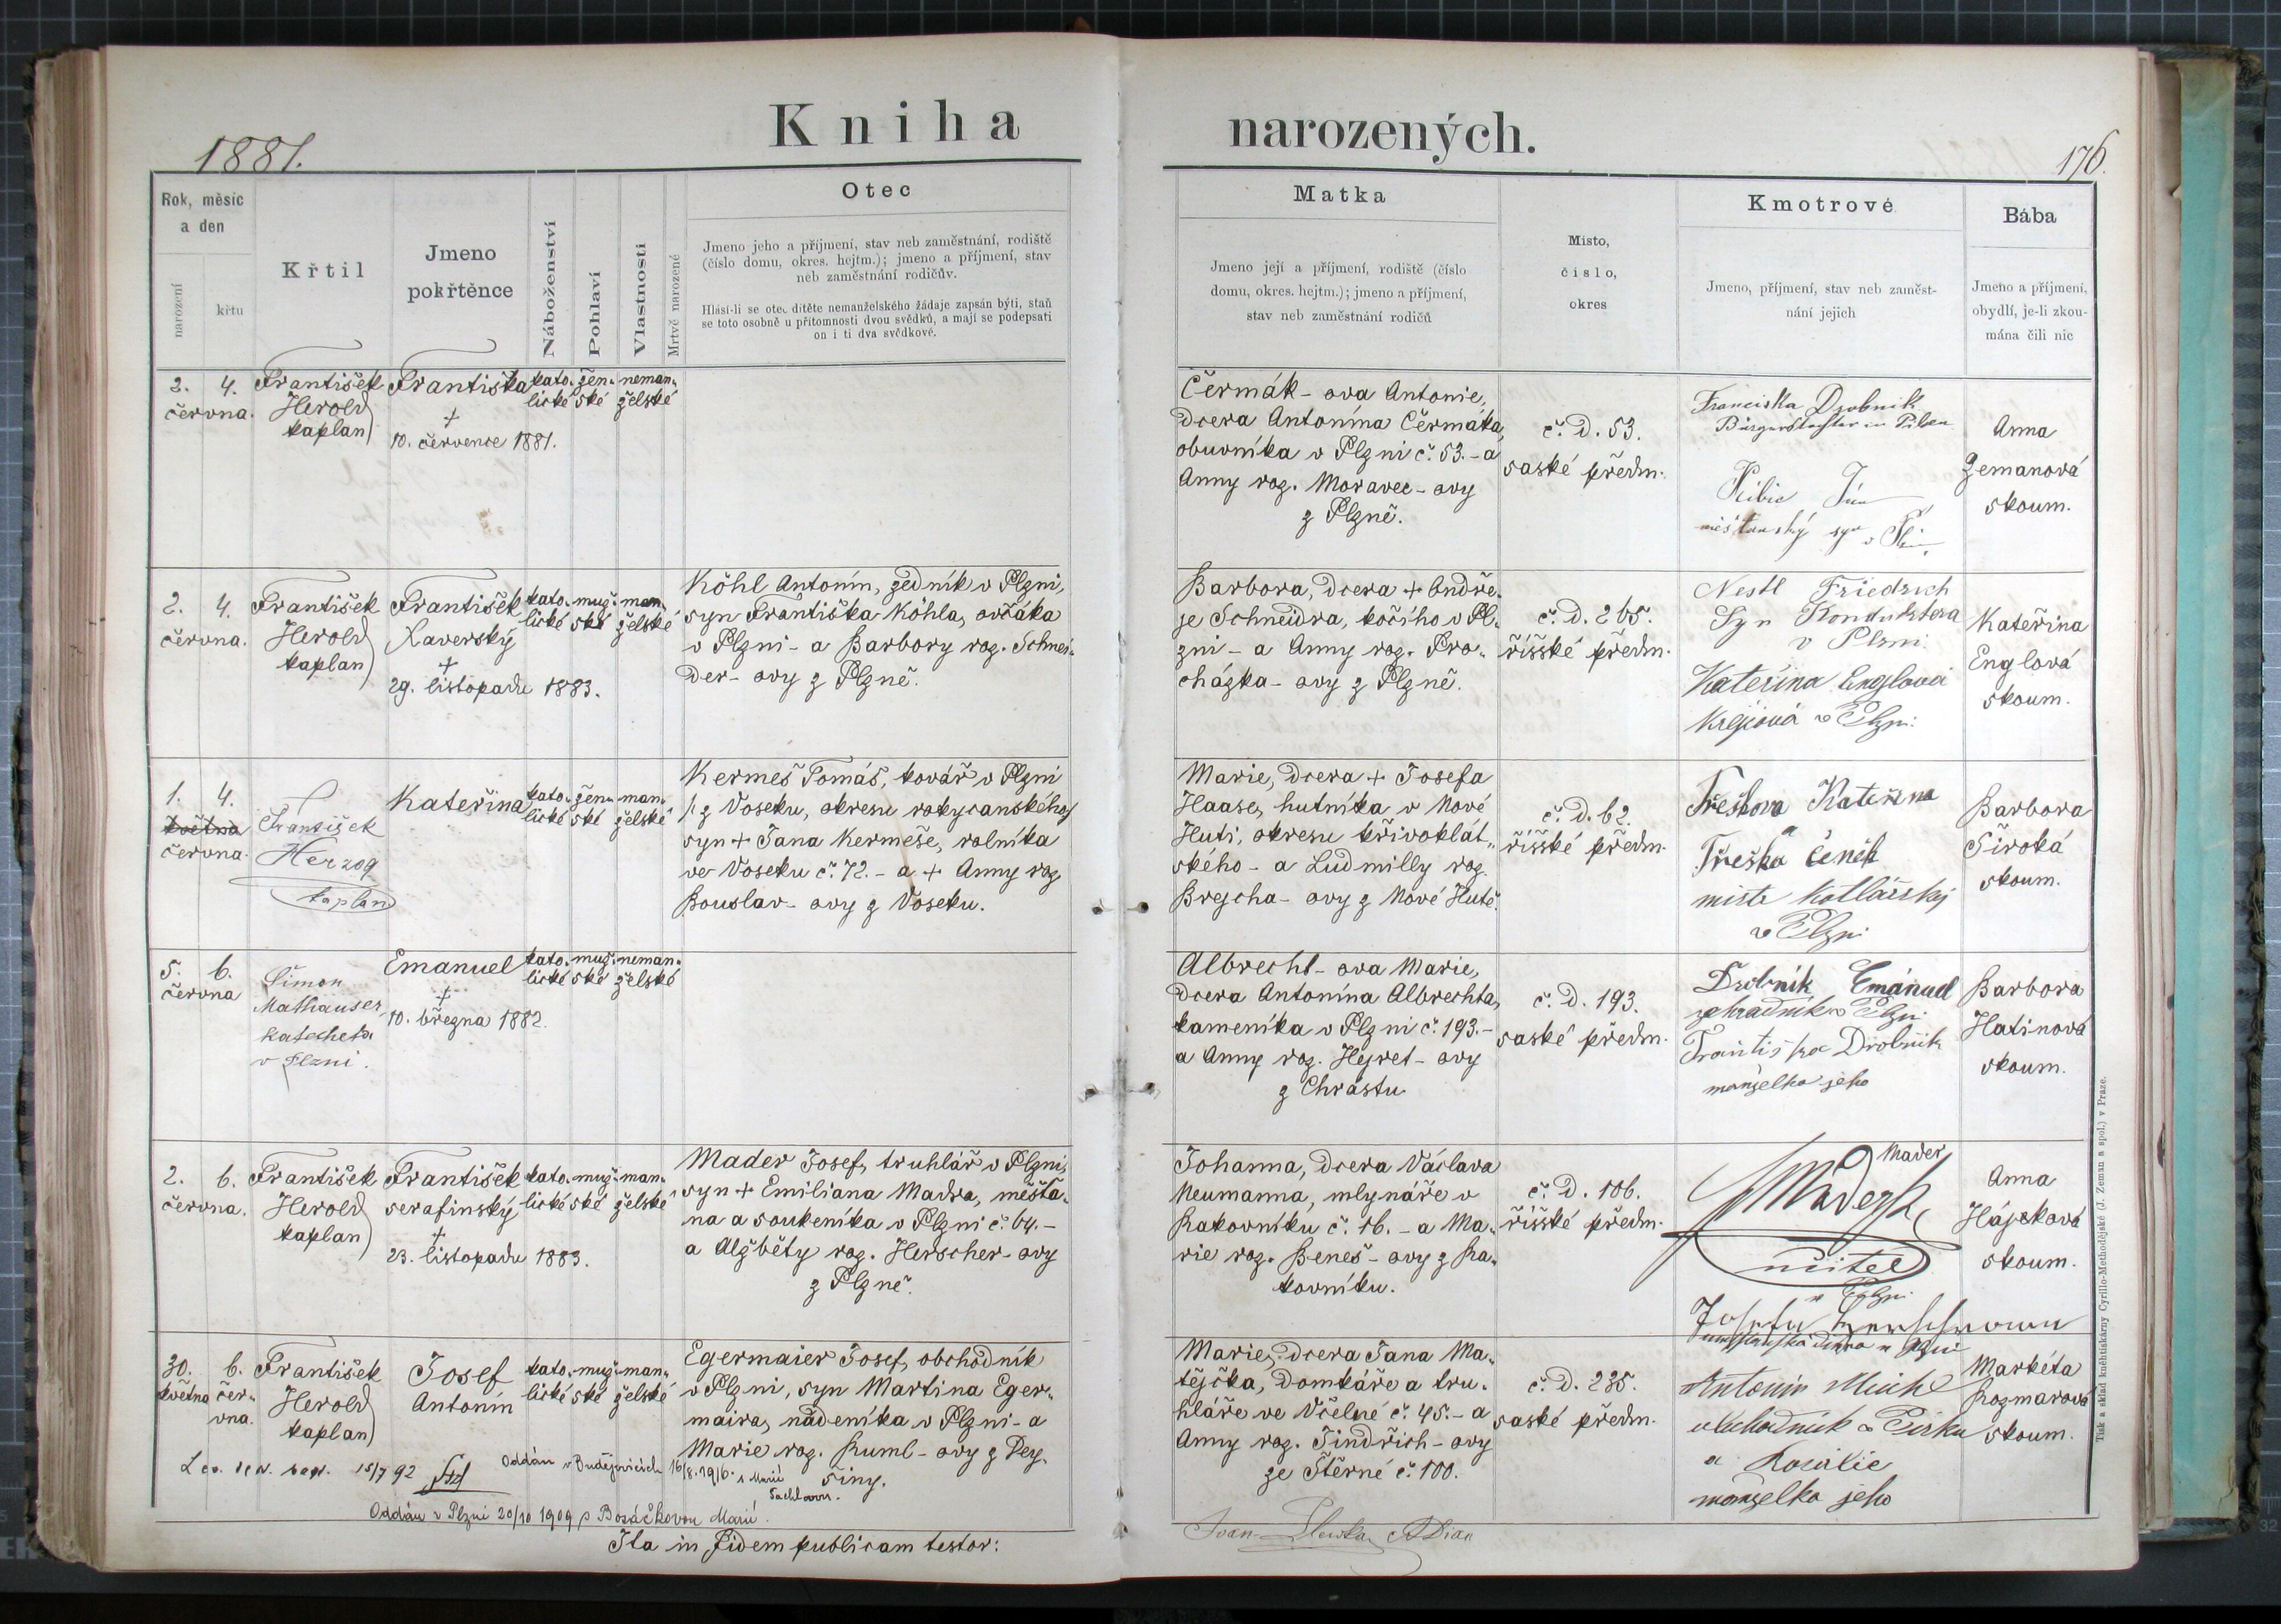 Kniha narozených.
1881.
176.
Rok, měsíc
a den
narození
křtu
Křtil
Jmeno
pokřtěnce
Náboženství
Pohlaví
Vlastnosti
Mrtvě narozené
Otec
Jmeno jeho a příjmení, stav neb zaměstnání, rodiště
(číslo domu, okres. hejtm.); jmeno a příjmení, stav
neb zaměstnání rodičův.
Hlásí-li se otec dítěte nemanželského žádaje zapsán býti, staň
se toto osobně u přítomnosti dvou svědků, a mají se podepsati
on i ti dva svědkové.
Matka
Jmeno její a příjmení, rodiště (číslo
domu, okres. hejtm.); jmeno a příjmení,
stav neb zaměstnání rodičů
Místo,
číslo,
okres
Kmotrové
Jmeno, příjmení, stav neb zaměst-
nání jejich
Bába
Jmeno a příjmení,
obydlí, je-li zkou-
mána čili nic
2. 4.
června.
František
Herold
kaplan
Františka
+
10. července 1881.
kato-
lické
žen-
ské
neman-
želské
Čermák-ova Antonie,
dcera Antonína Čermáka,
obuvníka v Plzni č. 53. - a
Anny roz. Moravec-ovy
z Plzně.
č. d. 53.
saské předm.
Franciska Drobnik
Bürgerstochter in Pilsen
měšťanský syn v
Anna
Zemanová
skoum.
2. 4.
června.
František
Herold
kaplan
František
Xaverský
+
29. listopadu 1883.
kato-
lické
muž-
ské
man-
želské
Köhl Antonín, zedník v Plzni,
syn Františka Köhla, ovčáka
v Plzni - a Barbory roz. Schnei-
der-ovy z Plzně.
Barbora, dcera + Ondře-
je Schneidra, kočího v Pl-
zni - a Anny roz. Pro-
cházka-ovy z Plzně.
č. d. 265.
říšské předm.
Nestl Friedrich
Syn Konduktera
v Plzni
Kateřina Englová
Krejčová v Plzni.
Kateřina
Englová
skoum.
1. 4.
května
června.
František
Herzog
kaplan
Kateřina
kato-
lické
žen-
ské
man-
želské
Kermeš Tomáš, kovář v Plzni
/: z Voseku, okresu rokycanského/
syn + Jana Kermeše, rolníka
ve Voseku č. 72. - a + Anny roz
Bouslav-ovy z Voseku.
Marie, dcera + Josefa
Haase, hutníka v Nové
Huti, okresu křivoklát-
ského - a Ludmilly roz.
Brejcha-ovy z Nové Hutě.
č. d. 62.
říšské předm.
Třeškova Kateřina
a
Třeška Čeněk
mistr kotlářský
v Plzni
Barbora
Široká
skoum.
5. 6.
června
Šimon
Mathauser,
katecheta
v Plzni.
Emanuel
+
10. března 1882.
kato-
lické
muž-
ské
neman-
želské
Albrecht-ova Marie,
dcera Antonína Albrechta,
kameníka v Plzni č. 193. -
a Anny roz. Hejret-ovy
z Chrástu
č. d. 193.
saské předm.
Drobník Emánuel
zahradník v Plzni
Františka Drobnik
manželka jeho
Barbora
Hatinová
skoum.
2. 6.
června.
František
Herold
kaplan
František
serafinský
+
23. listopadu 1883.
kato-
lické
muž-
ské
man-
želské
Mader Josef, truhlář v Plzni,
syn + Emiliana Madra, měšťa-
na a soukeníka v Plzni č. 64. -
a Alžběty roz. Herscher-ovy
z Plzně.
Johanna, dcera Václava
Neumanna, mlynáře v
Rakovníku č. 16. - a Ma-
rie roz. Beneš-ovy z Ra-
kovníku.
č. d. 106.
říšské předm.
Mader
učitel
v Plzni
Anna
Hájeková
skoum.
30. 6.
května čer-
vna.
František
Herold
kaplan
Josef
Antonín
kato-
lické
muž-
ské
man-
želské
Egermaier Josef, obchodník
v Plzni, syn Martina Eger-
maira, nádeníka v Plzni - a
Marie roz. Ruml-ovy z Dey-
šiny.
Marie, dcera Jana Ma-
tějčka, domkáře a tru-
hláře ve Včelné č. 45. - a
Anny roz. Jindřich-ovy
ze Štěrné č. 100.
č. d. 235.
saské předm.
Antonin Michl
obchodník v Písku
a Rosalie
manželka jeho
Markéta
Rozmarová
skoum.
15/7 92
Oddán v Budějovicích 16/8. 1916. s Marií
Oddán v Plzni 20/10 1909 s Bosáčkovou Marií.
Ita in fidem publicam testor:
Tisk a sklad knihtiskárny Cyrillo-Methodějské (J. Zeman a spol.) v Praze.